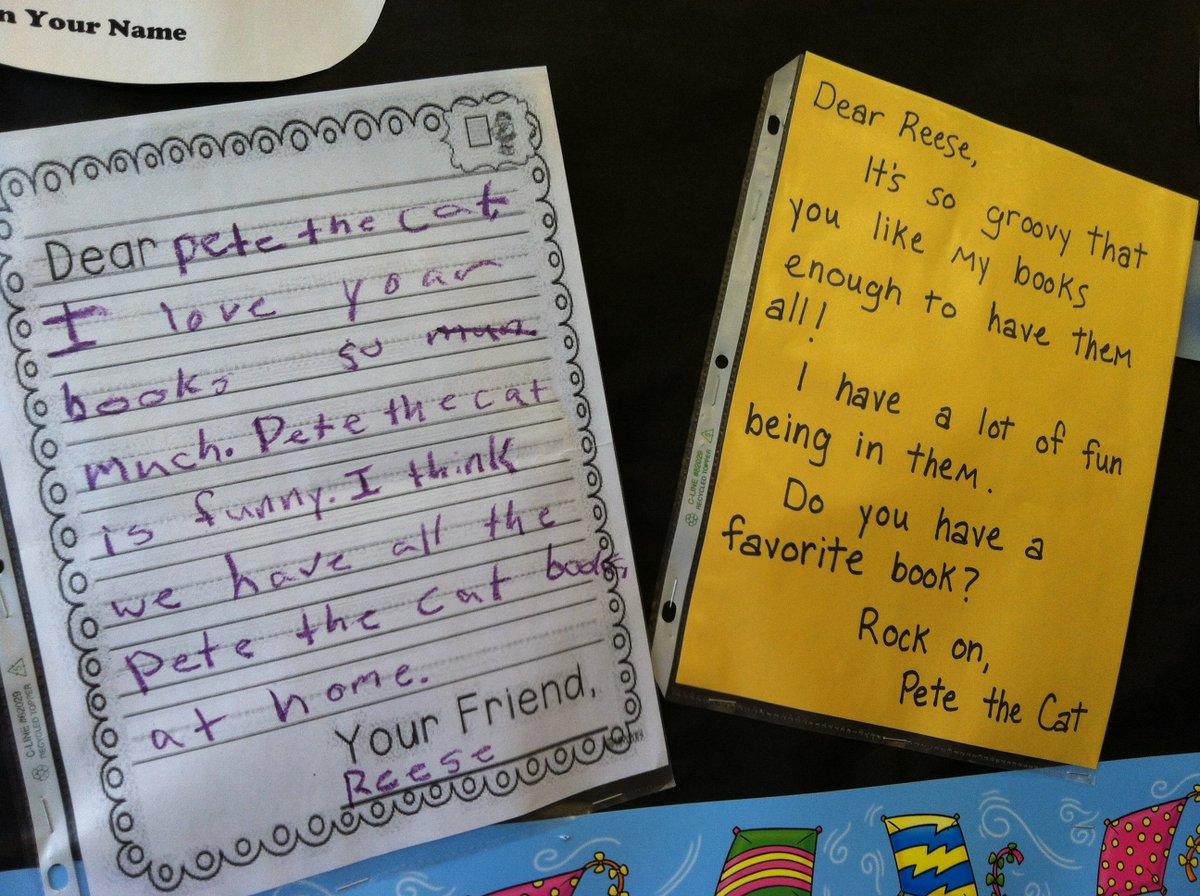 n Your Name
Dear pete the cat,
I love yoar
books so mun
much. Pete the cat
is funny. I think
we have all the
pete the cat books,
at home.
Your Friend,
Reese
C-LINE #62029
RECYCLED TOPPER
Dear Reese,
It's so groovy that
you like my books
enough to have them
all!
I have a lot of fun
being in them.
Do you have a
favorite book?
Rock on,
Pete the Cat
C-LINE #62029
RECYCLED TOPPER